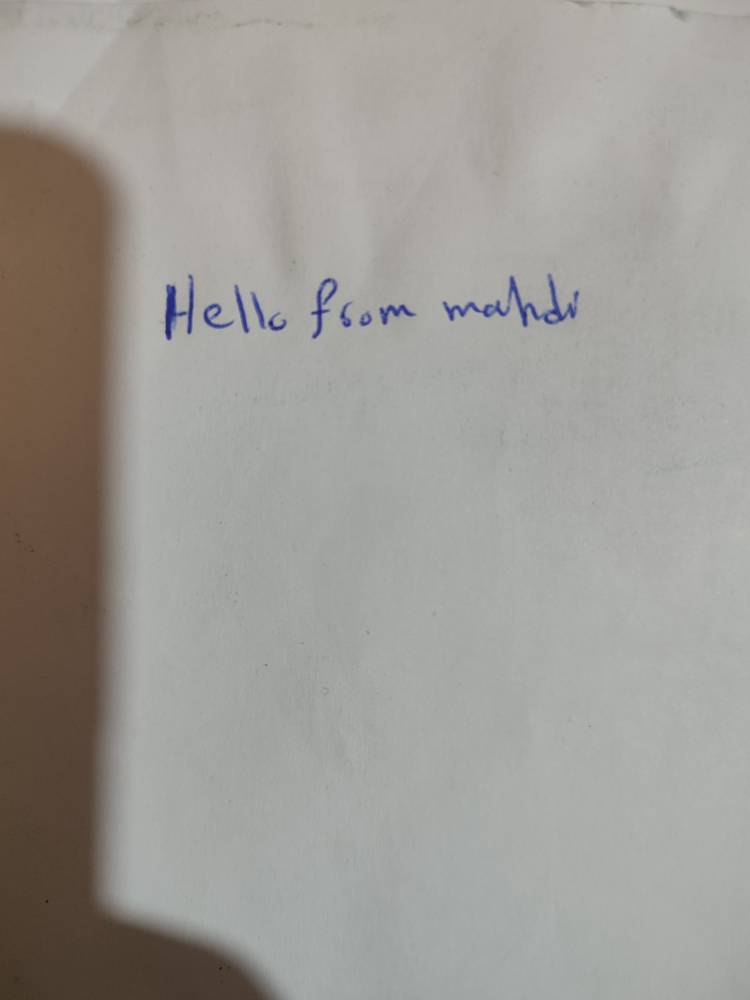 Hello from mahdi